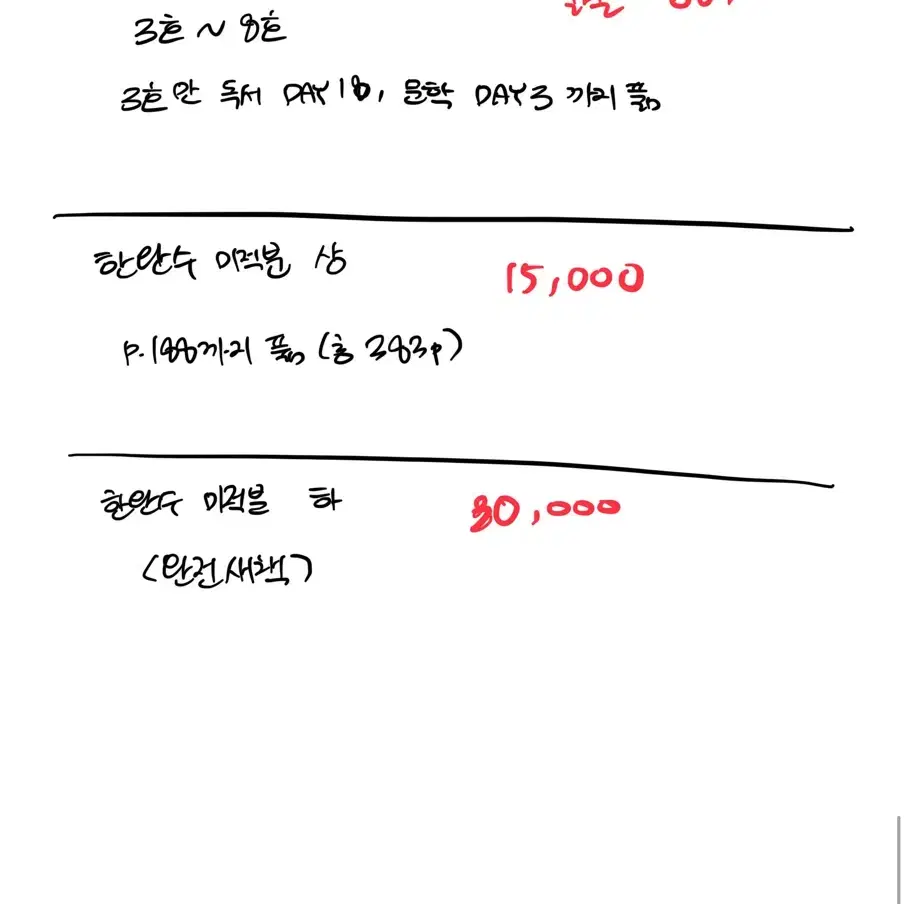 3호 ~ 8호
3호만 독서 DAY18, 문학 DAY3 까지 풂
한완수 미적분 상
15,000
p.188까지 풂 (총 383p)
한완수 미적분 하
30,000
(완전새책)